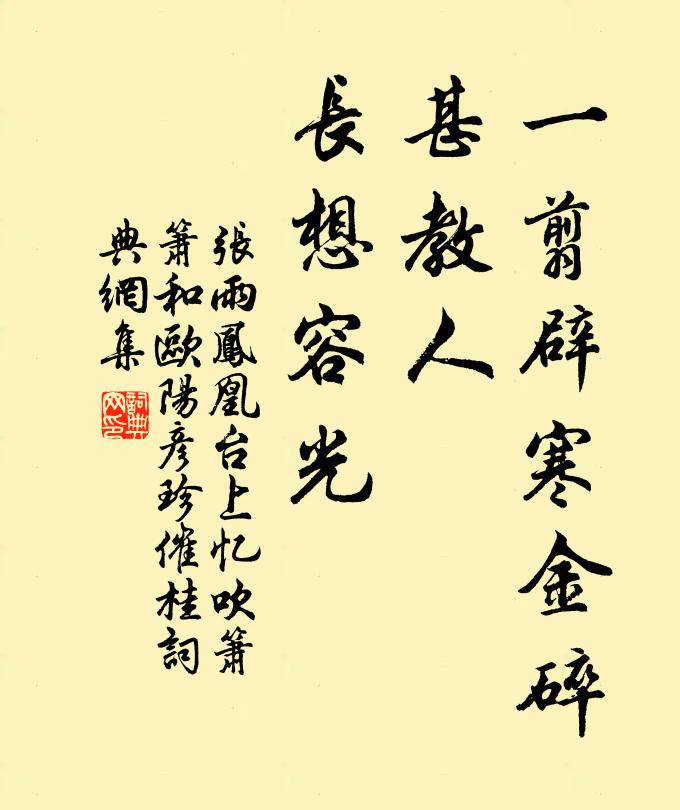 一翦辟寒金碎
甚教人
長想容光
張雨鳳凰台上忆吹簫
簫和歐陽彥珍催桂詞
典網集
詞典网印